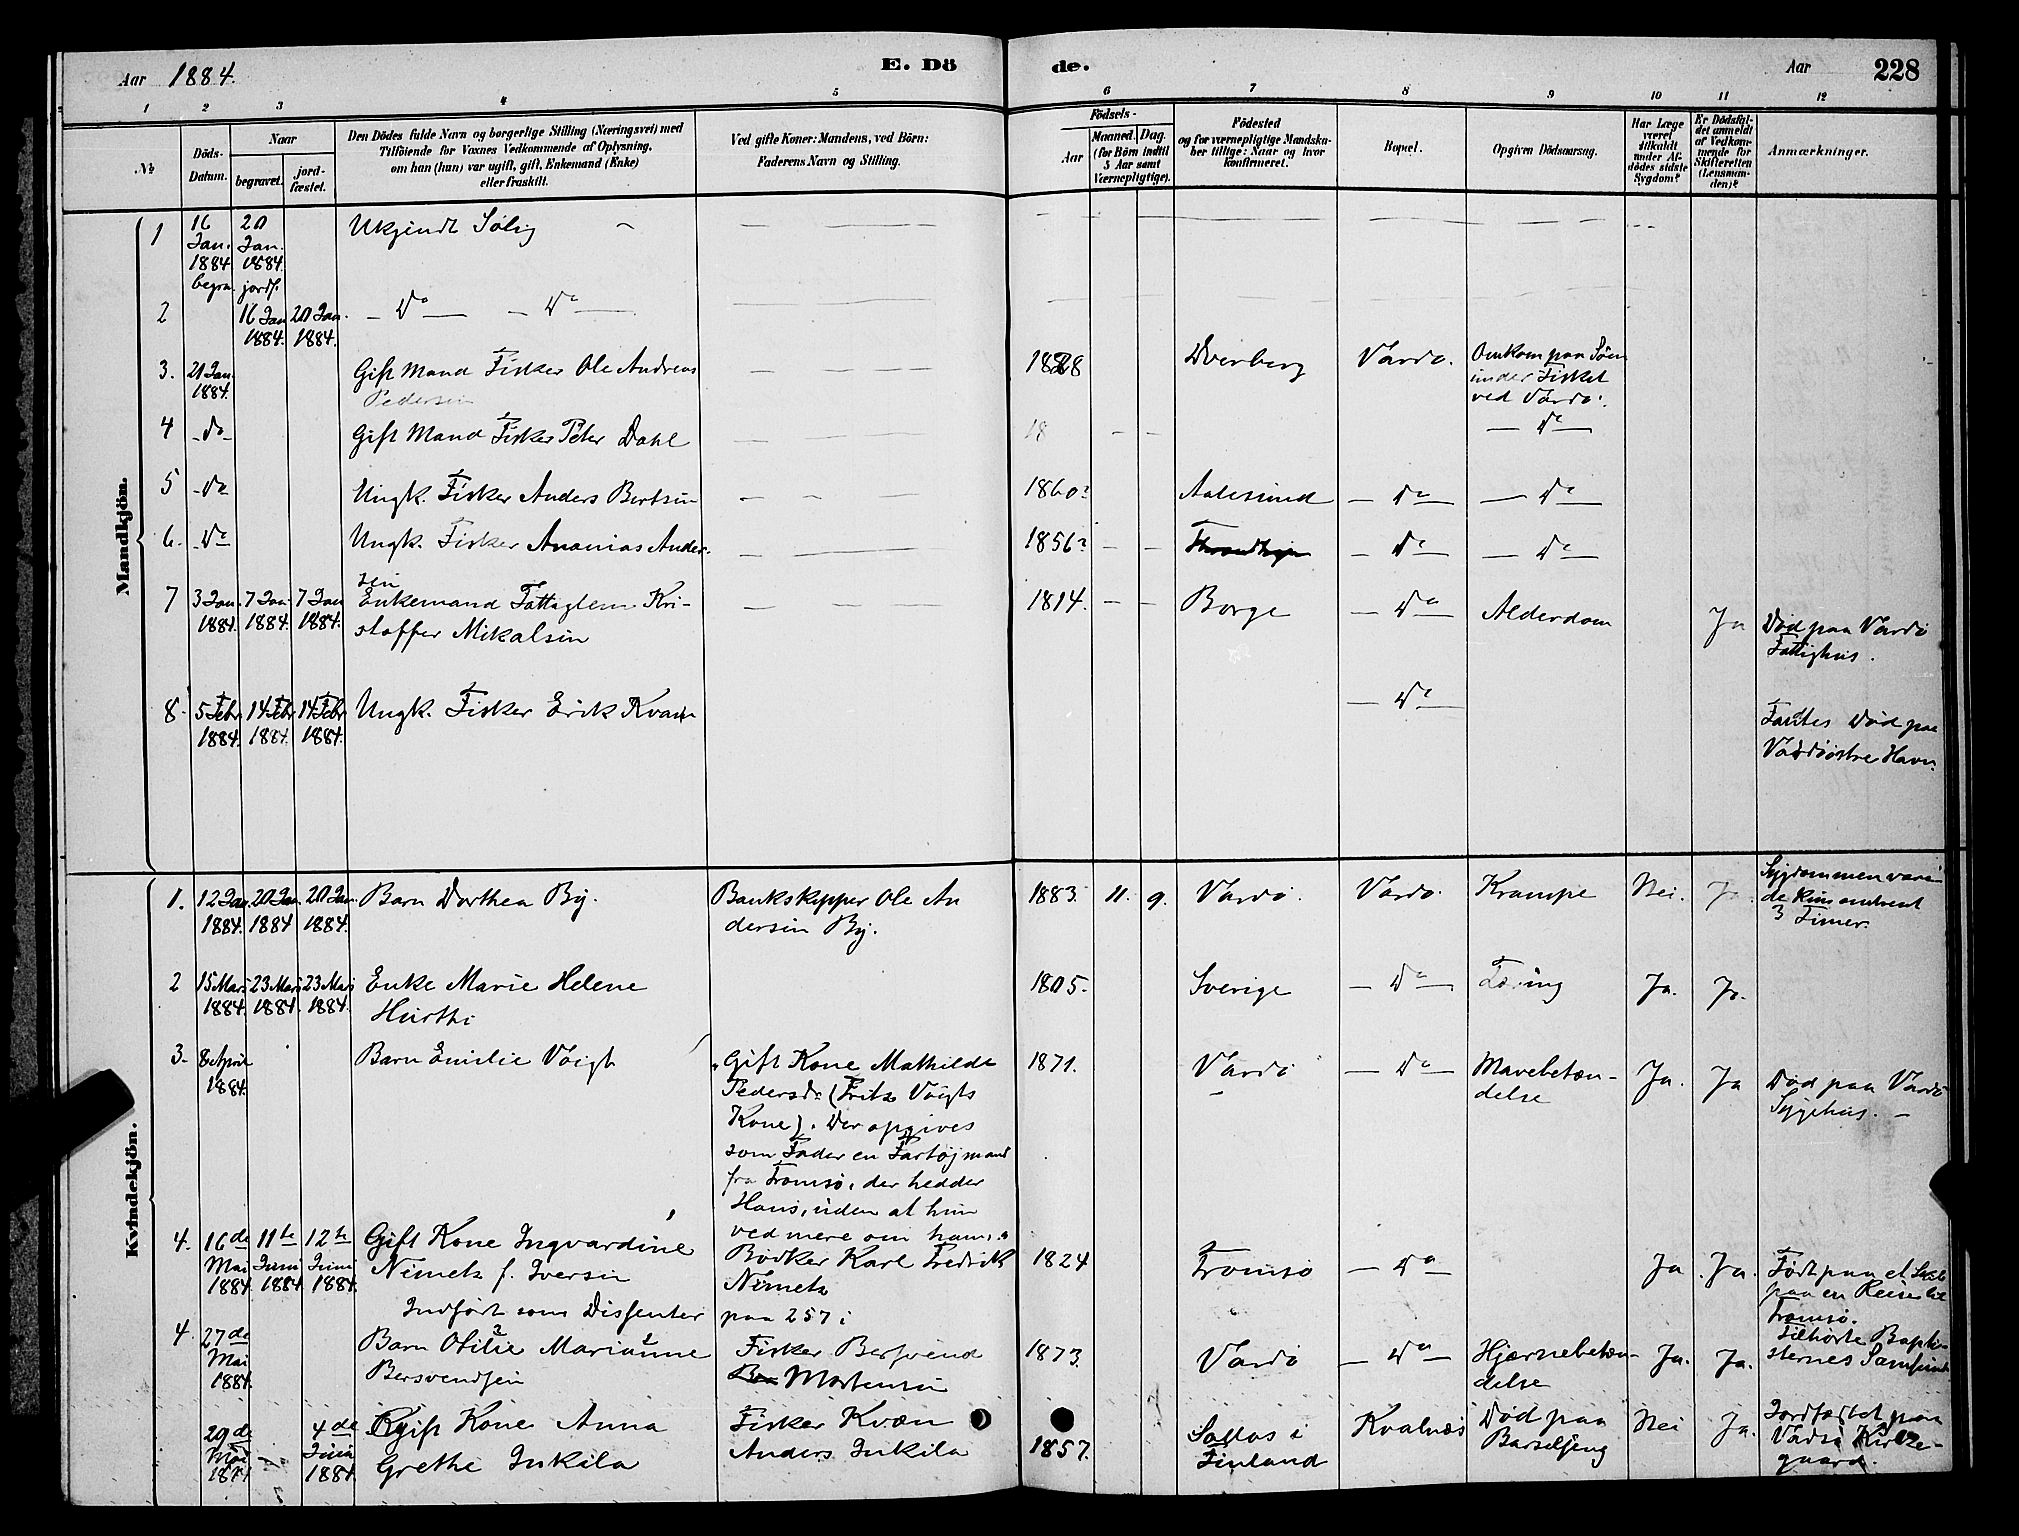 Aar 1884.
E. Dö
de.
Aar
228
1 2 3 4 5 6 7 8 9 10 11 12
№
Döds-Datum.
Naar
begravet.
jordfæstet.
Den Dödes fulde Navn og borgerlige Stilling (Næringsvei) med
Tilföiende for Voxnes Vedkommende af Oplysning,
om han (hun) var ugift, gift, Enkemand (Enke)
eller fraskilt.
Ved gifte Koner: Mandens, ved Börn:
Faderens Navn og Stilling.
Födsels-
Aar
Maaned. Dag.
(for Börn indtil
5 Aar samt
Værnepligtige).
Födested
og for værnepligtige Mandskaber tillige: Naar og hvor
konfirmeret.
Bopæl.
Opgiven Dödsaarsag.
Har Læge
været
tilkaldt
under Afdödes sidste
Sygdom?
Er Dödsfaldet anmeldt
af Vedkommende for
Skifteretten
(Lensmanden)?
Anmærkninger.
Mandkjön.
1 16 Jan. 1884 20 Jan. 1884. Ukjendt Sølig
begra. jordf.
2 16 Jan 1884. 20 Jan. 1884. – Do – – Do –
3. 21 Jan. 1884. Gift Mand Fisker Ole Andreas
Pedersen
1828 Dverberg Vardø. Omkom paa Søen
under Fisket
ved Vardø.
4 – do – Gift Mand Fisker Peter Dahl 18 – Do –
5 – Do Ungk. Fisker Anders Bertsen 1860? Aalesund – Do – – Do –
6. – Do Ungk. Fisker Ananias Andersen
1856? – Do – – Do –
7 3 Jan. 1884. 7 Jan. 1884. 7 Jan 1884. Enkemand Fattiglem Kristoffer Mikalsen
1814. Borge – Do – Alderdom Ja Død paa Vardø
Fattighus.
8 5 Febr 1884. 14 Febr 1884. 14 Febr 1884. Ungk. Fisker Erik Kvam – Do –
Fantes Død paa
Vardø østre Havn.
Kvindekjön.
1. 12 Jan. 1884. 20 Jan. 1884 20 Jan. 1884. Barn Dorthea By. Bankskipper Ole Andersen By.
1883. 11. 9. Vardø. Vardø. Krampe Nei. Ja.
Sygdommen varede kun omtrent
3 Timer.
2 15 Mars 1884. 23 Mars 1884. 23 Mars 1884. Enke Marie Helene
Hurthi
1805. Sverige – Do – Tæring Ja. Ja.
3. 8 April 1884. Barn Emilie Voigt
Gift Kone Mathilde
Pedersd. (Fritz Voigts
Kone). Der opgives
som Fader en Fartøjmand
fra Tromsø, der hedder
Hans, uden at hun
ved mere om ham.
1871. Vardø – Do – Mavebetændelse Ja. Ja Død paa Vardø
Sygehus. –
4. 16de Mai 1884. 11te Juni 1884 12te Juni 1884. Gift Kone Ingvardine
Nimetz f. Iversen
Indført som Dissenter paa 257
Bødker Karl Fredrik
Nimetz
1824 Tromsø – Do – Ja. Ja.
Født paa et
paa en Reise til
Tromsø.
4. 27de Mai 1884. Barn Otilie Marianne
Bersvendsen
Fisker Bersvend
Mortensen
1873. Vardø – Do – Hjernebetændelse Ja. Ja.
Tilhørte Baptisternes Samfund
29de Mai 1884 4de Juni 1884. Gift Kone Anna
Grethe Inkila
Fisker Kvæn
Anders Inkila
1857. Sallas i
Finland Kvalnæs Død paa
Barselseng Nei Ja.
Jordfæstet paa
Vadsø Kirkegaard.